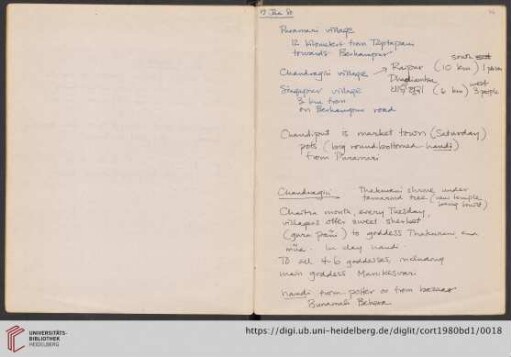 17 Jan 80
Puramari village
12 kilometers from Taptapani
towards Berhampur
south
Chandragiri village → Raipur (10 km) 1 person
west
Singapur village (6 km) 3 people
3 km from
on Berhampur road
Chandiput is market town (Saturday)
pots (long round bottomed handi)
from Puramari
Chandragiri Thakurani shrine under
tamarind tree (new temple
being built)
Chaitra month, every Tuesday,
villagers offer sweet sherbet
to goddess Thakurani
in clay handi
To all 4-6 goddesses, including
main goddess Manikesvari
handi from potter or from bazaar
Behera
UNIVERSITÄTS-
BIBLIOTHEK
HEIDELBERG
https://digi.ub.uni-heidelberg.de/diglit/cort1980bd1/0018